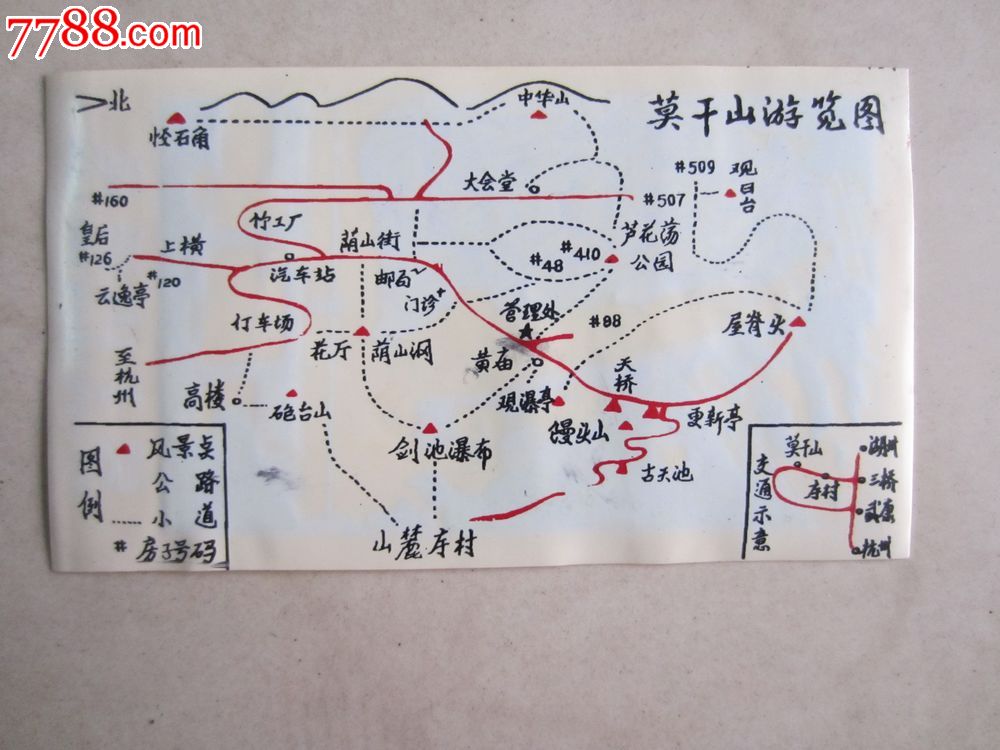 7788.com
莫干山游览图
北
怪石角
中华山
大会堂
#160
#507
#509
观日台
皇后
#126
上横
竹工厂
荫山街
#410
#48
芦花荡
公园
云逸亭
#120
汽车站
邮局
门诊
仃车场
管理处
#98
屋脊头
花厅
荫山洞
黄庙
天桥
至杭州
高楼
砲台山
观瀑亭
更新亭
剑池瀑布
馒头山
古天池
山麓庄村
图例
风景点
公路
小道
# 房子号码
交通示意
莫干山
庄村
湖州
三桥
武康
杭州